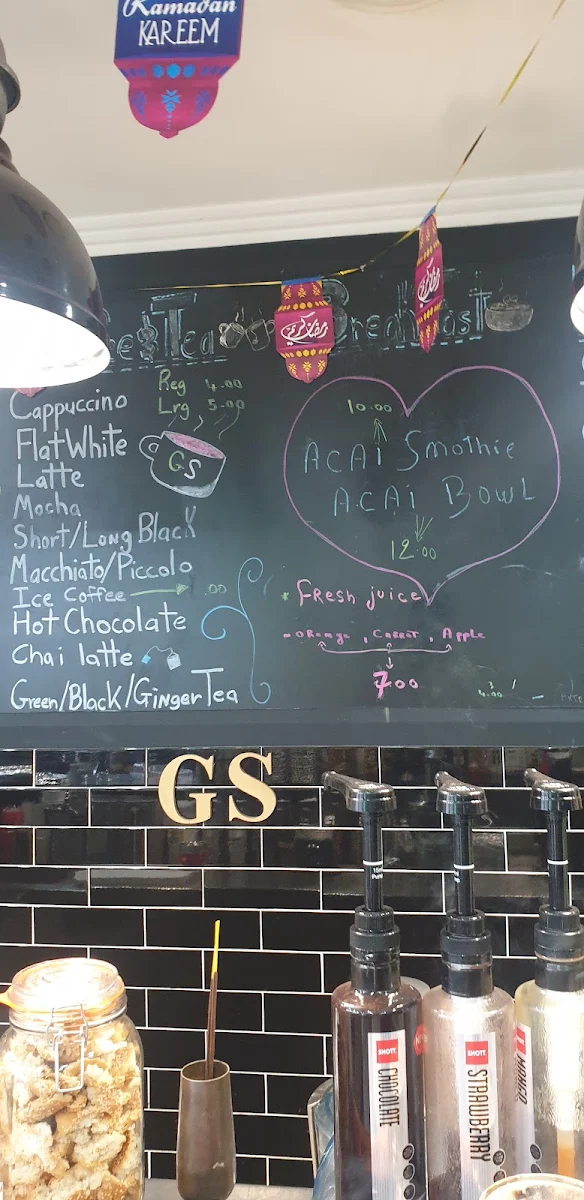 Ramadan
KAREEM
رمضان كريم
رمضان كريم
Tea
Breakfast
Reg 4.00
Lrg 5.00
Cappuccino
Flat White
Latte
Mocha
Short/Long Black
Macchiato/Piccolo
Ice Coffee
.00
Hot Chocolate
Chai latte
Green/Black/Ginger Tea
GS
10.00
ACAI Smothie
ACAI BOWL
12.00
* Fresh juice
- Orange, Carrot, Apple
700
4.00
GS
SHOTT
CHOCOLATE
SHOTT
STRAWBERRY